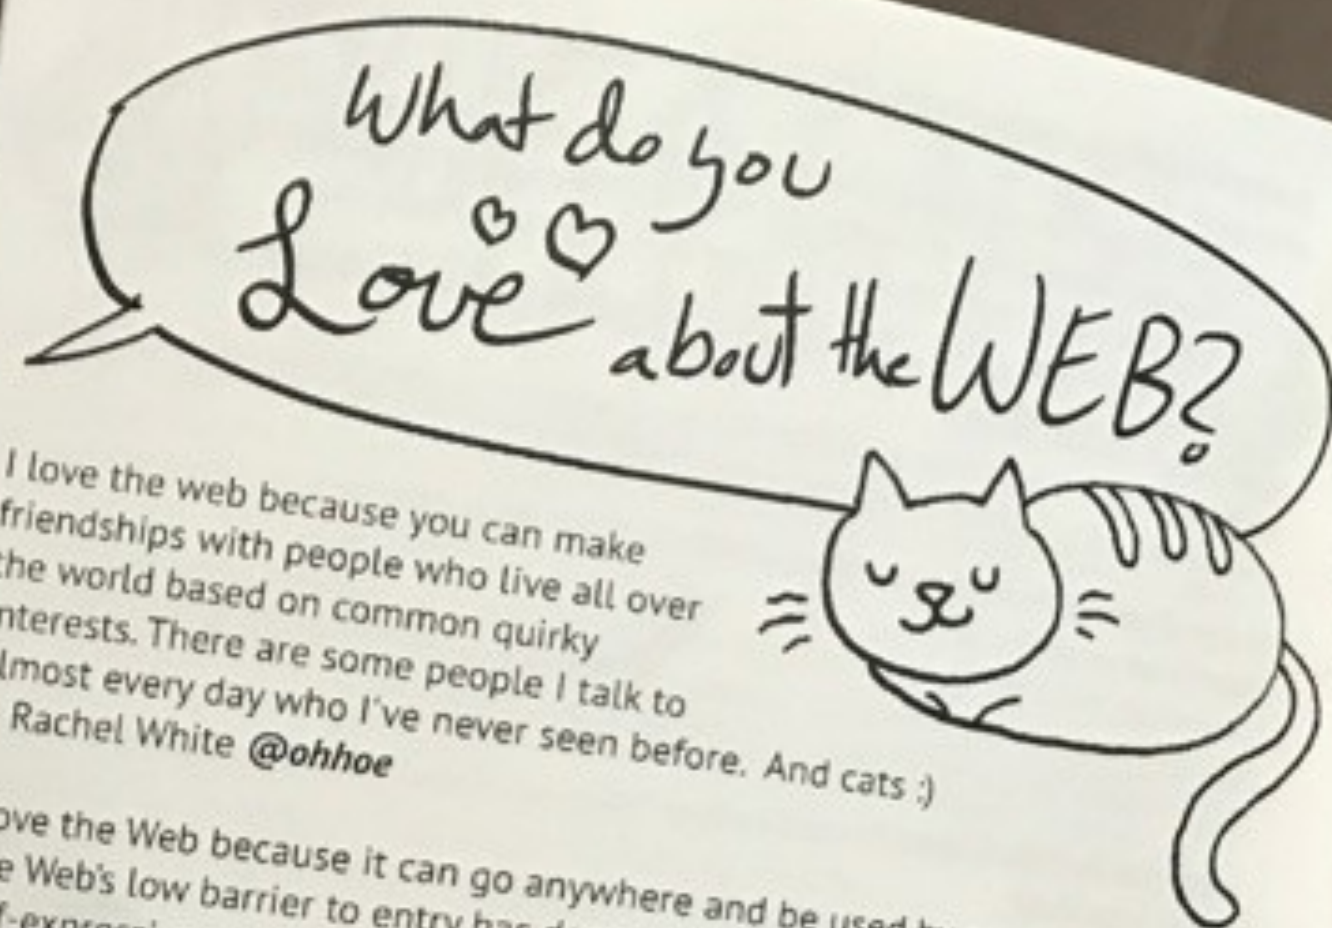 What do you
Love about the WEB?
I love the web because you can make
friendships with people who live all over
the world based on common quirky
nterests. There are some people I talk to
lmost every day who I've never seen before. And cats :)
Rachel White @ohhoe
ove the Web because it can go anywhere and be used
e Web's low barrier to entry has